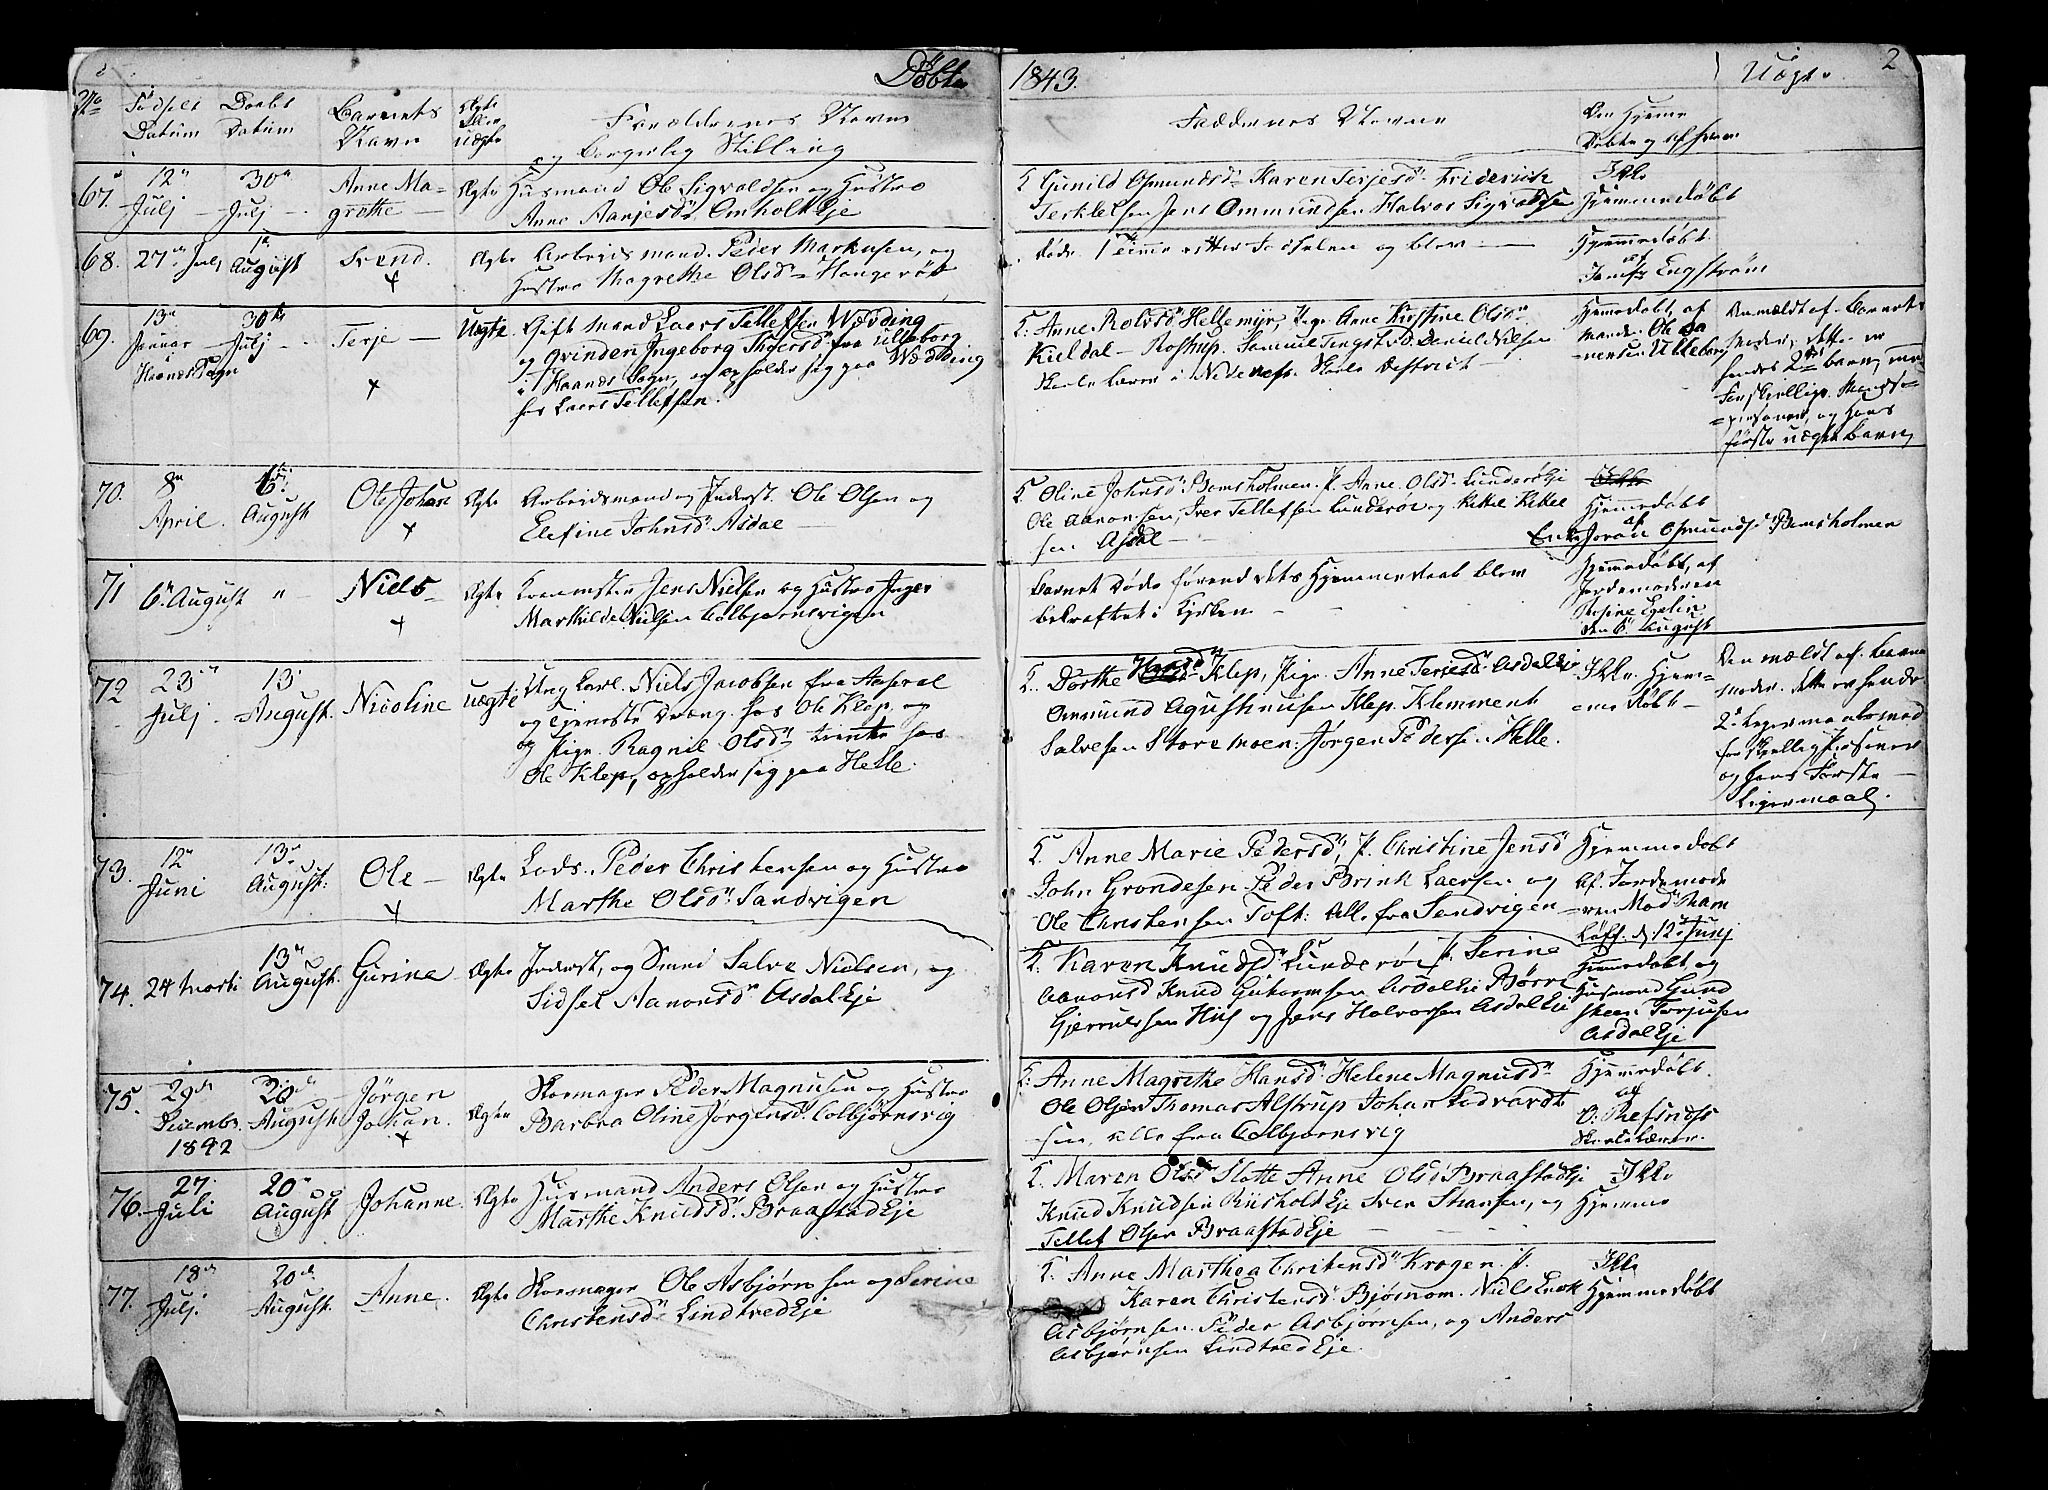 Døbte 1843. Uægte 2
No Fødsels Datum Daabs Datum Barnets Navn Ægte Eller uægte Forældrenes Navne og Borgerlig Stilling Faddernes Navne Om Hjemme Døbte og af hvem
67. 12 Julj 30 Julj Anne Ma-
grethe Ægte Husmand Ole Sigvaldsen og Hustro
Anne Aanjesd. Omholt Eje
F Gunild Osmundsd. Karen Terjesd. Friderich
Terkelsen Jens Ommundsen Halvor Sigvaldsen
Ikke
Hjemmedøbt
68. 27 Julj 1 August Svend. Ægte Arbeidsmand. Peder Markusen, og
Hustro Magrethe Olsd. Haugerød
døde 1 Time efter Fødselen og blev
Hjemmedøbt
af
Jomfr Engstrøm
69. 13 Januar 30 Julj Terje Uægte. Gift Mand Laers Tellefsen Wædding
og Qvinden Ingeborg Thoersd. fra Ulleborg
i Haanæs Sogn, og opholder sig paa Wædding
hos Laers Tellefsen.
Haanæs Sogn
F: Anne Rolvsd. Hellemijr, Pige Anne Kirstine Olsd.
Kieldal Rostrup. Samuel Daniel Nilsen
Skolelærer i Nedenes Skole Destrict
Hjemedøbt, af
Manden Ole
Ulleborg
Anmældt af Barnets
Moder, dette er
hendes 2det barn, med
forskjellige Mands-
personer, og hans
første uægte barn
70. 8 April. 6 August Ole Johan Ægte Arbeidsmand og Inderst. Ole Olsen og
Elefine Johnsd. Asdal
F Oline Johnsd. Bomsholmen. P. Anne Olsd. Lunderød Eje
Ole Aanonsen, Iver Tellefsen Lunderød og Kittil Kittel
sen Asdal
Ikke
Hjemmedøbt
af
Enke Joran Osmundsd. Bomsholmen
71 6 August " Niels Ægte Jens Nielsen og Hustro Inger
Marthilde Nielsen Colbjørnsvigen
Barnet døde førend dets Hjemmedaab blev
bekræftet i Kirken
Hjemmedøbt, af
Jordemoderen
Rosine Evelin
den 6 August
72 23 Julj 13 August. Nicoline uægte Ung Karl. Niels Jacobsen fra Aaseral
og tjeneste Dreng. hos Ole Klep, og
og Pige. Ragnil Olsd. tiente hos
Ole Klep, opholder sig paa Helle.
F. Dorthe Hansd. Klep, Pige. Anne Terjesd. Asdal Eje
Ommund Agusthinsen Klep. Klemment
Salvesen Storemoen: Jørgen Pedersen Helle.
Ikke Hjem-
me Døbt
Anmældt af Barnets
Moder. dette er hendes
2 Leiermaal med
forskjellig Personer
og hans Første
Leiermaal.
73. 12 Juni 13 August. Ole Ægte Lods. Peder Christensen og Hustro
Marthe Olsd. Sandvigen
F. Anne Marie Pedersd, P. Christine Jensd
John Grondesen Peder Brink Laersen og
Ole Christensen Toft: Alle fra Sandvigen
Hjemmedøbt
af. Jordemode
ren Mad Ham
Løff. d. 12 Junj
74. 24 Marti 13 August. Gurine Ægte Inderst, og Smed Salve Nielsen, og
Sidsel Aanonsd Asdal Eje
F: Karen Knudsd. Lunderød P. Serine
Aanonsd Knud Gutormsen Asdal Eje Børre
Gjerulfsen His og Jens Halvorsen Asdal Eje
Hjemmedøbt og
Husmand Gund
Torjusen
Asdal Eje
75. 29 Decembr. 1842 20 August Jörgen
Johan. Ægte Skomager Peder Magnusen og Hustro
Barbra Oline Jörgensd. Colbjørnsvig
F: Anne Magrethe Hansd. Helene Magnusd.
Ole Olsen Thomas Alstrup Johan Edvardt
sen, alle fra Colbjørnsvig
Hjemmedøbt.
af
O. Refsnes
Skolelærer.
76. 27. Juli 20 August Johanne. Ægte Husmand Anders Olsen og Hustro
Marthe Knudsd. Braastad Eje
F. Maren Olsd Slotte Anne Olsd Braastad Eje
Knud Knudsen Rusholt Eje Iver Thorsen, og
Tellef Olsen Braastad Eje
Ikke
Hjemme
77. 18 Julj. 20 August. Anne. Ægte Skomager Ole Asbjørnsen og Serine
Christensd. Lindtved Eje
F. Anne Marthea Christensd. Krogen. P.
Karen Christensd. Bjosnom. Niels Enok
Asbjørnsen. Peder Asbjørnsen, og Anders
Asbjørnsen Lindtved Eje.
Ikke
Hjemmedøbt